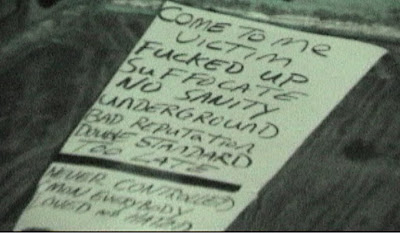 COME TO ME
VICTIM
FUCKED UP
SUFFOCATE
NO SANITY
UNDERGROUND
BAD REPUTATION
DOUBLE STANDARD
TOO LATE
NEVER CONTROLLED
C'MON EVERYBODY
LOVED AND HATED